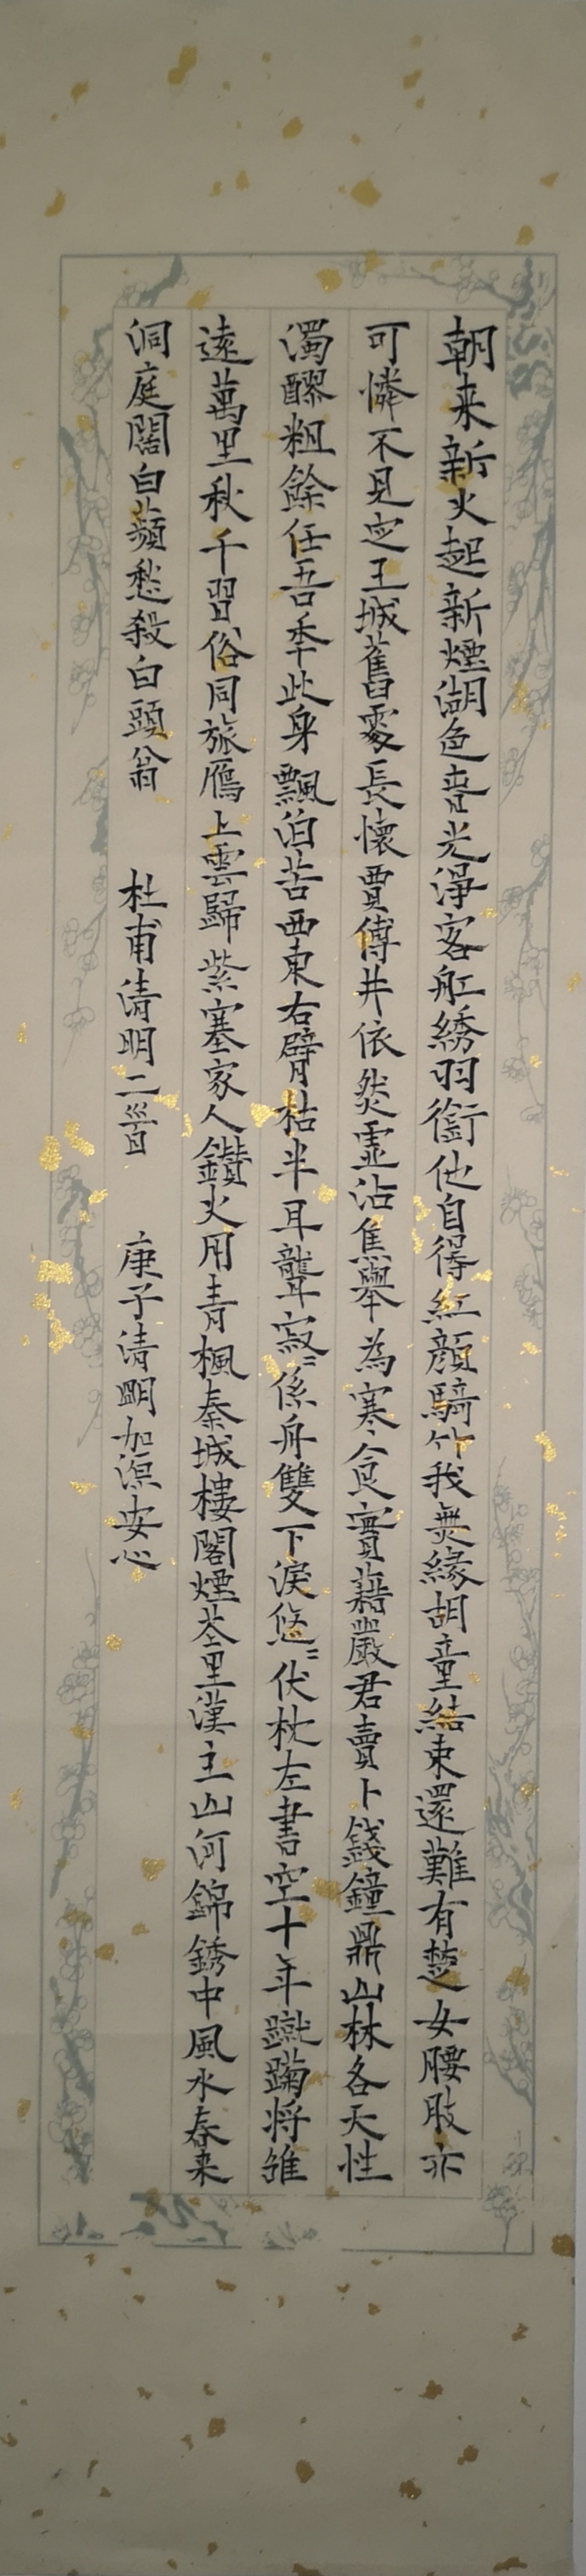 朝来新火起新煙湖色春光淨客舡綉羽銜他自得紅顔騎竹我無緣胡童結束還難有楚女腰肢亦
可憐不見定王城舊處長懷賈傅井依然虛沾焦舉為寒食實藉嚴君賣卜錢鐘鼎山林各天性
濁醪粗餘任吾年此身飄泊苦西東右臂枯半耳聾寂〻係舟雙下淚悠〻伏枕左書空十年蹴踘將雏
遠萬里秋千習俗同旅鴈上雲歸紫塞家人鑚火用青楓秦城樓閣煙苍里漢主山河錦銹中風水春来
洞庭闊白蘋愁殺白頭翁 杜甫清明二首 庚子清明如涼安心